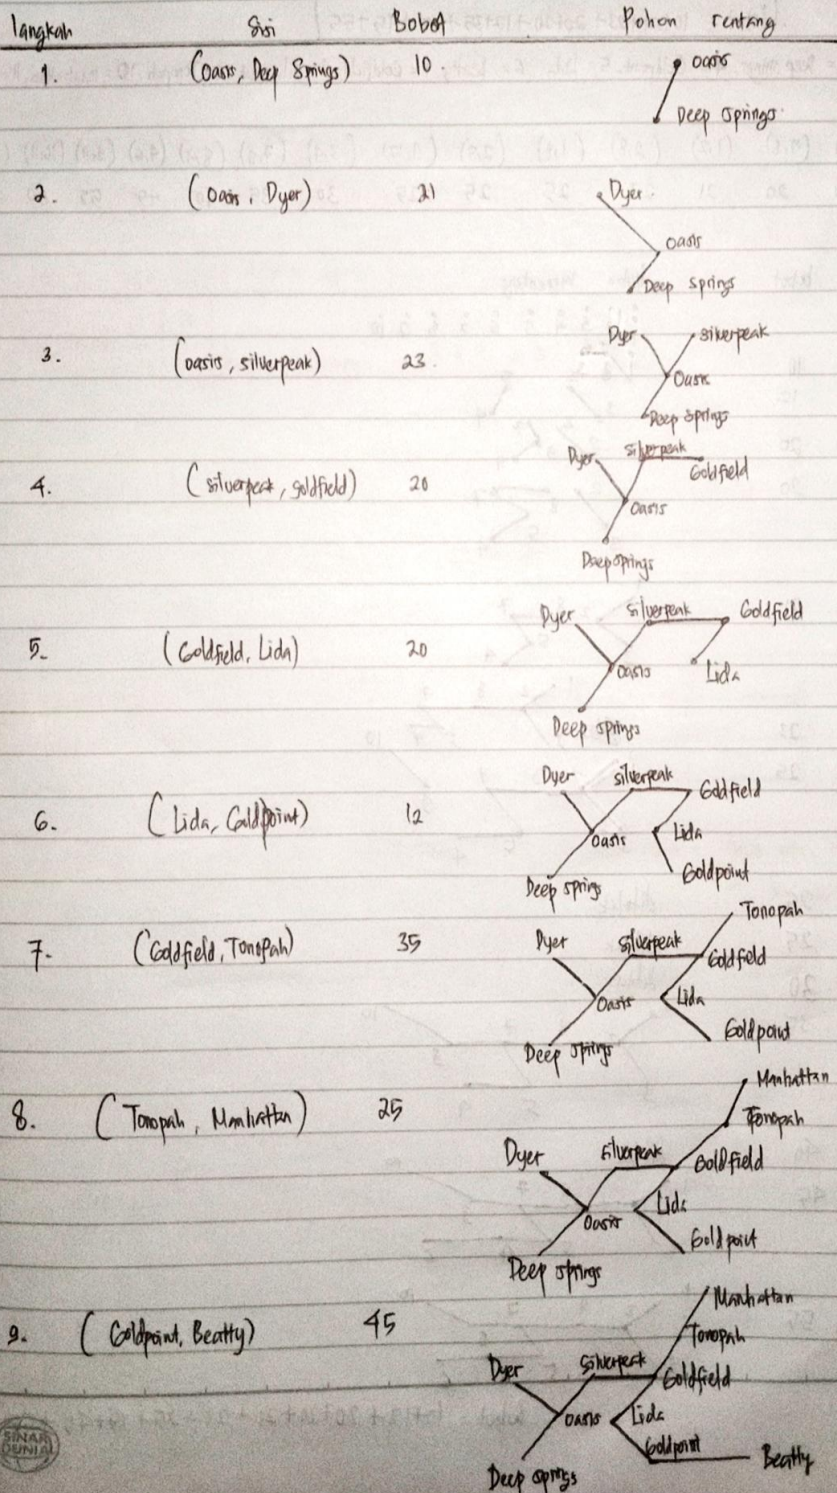 langkah Sisi Bobot Pohon rentang
1. (Oasis, Deep Springs) 10.
Oasis
Deep Springs
2. (Oasis, Dyer) 21
Dyer
Oasis
Deep Springs
3. (Oasis, Silverpeak) 23.
Dyer Silverpeak
Oasis
Deep Springs
4. (Silverpeak, Goldfield) 20
Dyer Silverpeak Goldfield
Oasis
Deep springs
5. (Goldfield, Lida) 20
Dyer Silverpeak Goldfield
Oasis Lida
Deep springs
6. (Lida, Goldpoint) 12
Dyer Silverpeak Goldfield
Oasis Lida
Deep springs Goldpoint
7. (Goldfield, Tonopah) 35
Tonopah
Dyer Silverpeak Goldfield
Oasis Lida
Deep springs Goldpoint
8. (Tonopah, Manhattan) 25
Manhattan
Tonopah
Dyer Silverpeak Goldfield
Oasis Lida
Deep springs Goldpoint
9. (Goldpoint, Beatty) 45
Manhattan
Tonopah
Dyer Silverpeak Goldfield
Oasis Lida
Goldpoint
Deep springs Beatty
SINAR DUNIA